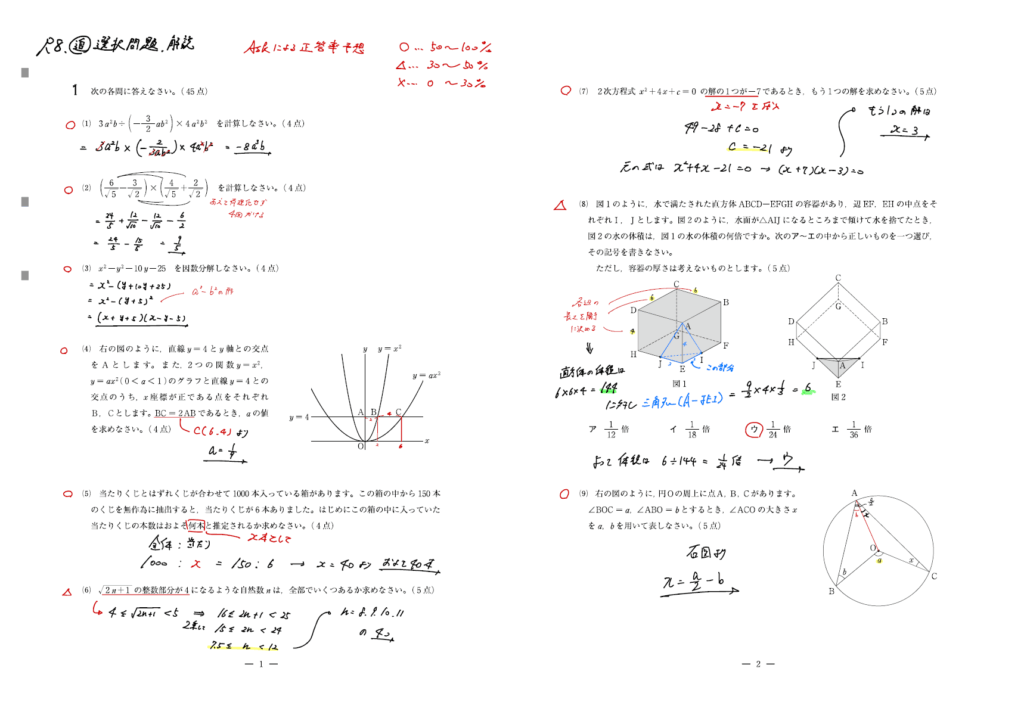 R8. 道 選択問題. 解説
Askによる正答率予想
○… 50〜100%
△… 30〜50%
×… 0 〜30%
1 次の各問に答えなさい。(45点)
○ (1) 3a²b÷(−3/2 ab²)×4a²b² を計算しなさい。(4点)
= 3a²b × (−2/3ab²) × 4a²b² = −8a³b
○ (2) (6/√5 − 3/√2)×(4/√5 + 2/√2) を計算しなさい。(4点)
4回かける
= 24/5 + 12/√10 − 12/√10 − 6/2
= 24/5 − 15/5 = 9/5
○ (3) x²−y²−10y−25 を因数分解しなさい。(4点)
= x²−(y²+10y+25)
= x²−(y+5)²
a²−b²の形
= (x+y+5)(x−y−5)
○ (4) 右の図のように,直線 y=4 と y 軸との交点
を A とします。また,2つの関数 y=x²,
y=ax²(0<a<1)のグラフと直線 y=4 との
交点のうち,x 座標が正である点をそれぞれ
B,C とします。BC=2AB であるとき,a の値
を求めなさい。(4点)
C(6.4)より
a=1/9
y y=x²
y=ax²
y=4 A B C
O x
○ (5) 当たりくじとはずれくじが合わせて1000本入っている箱があります。この箱の中から150本
のくじを無作為に抽出すると,当たりくじが6本ありました。はじめにこの箱の中に入っていた
当たりくじの本数はおよそ何本と推定されるか求めなさい。(4点)
x本として
全体:当たり
1000 : x = 150 : 6 → x=40より およそ40本
△ (6) √2n+1 の整数部分が4になるような自然数 n は,全部でいくつあるか求めなさい。(5点)
4≦√2n+1<5 ⇒ 16≦2n+1<25
2乗して 15≦2n<24
7.5≦ n <12
n=8.9.10.11
の 4コ
— 1 —
○ (7) 2次方程式 x²+4x+c=0 の解の1つが−7であるとき,もう1つの解を求めなさい。(5点)
x=−7を代入
49−28+c=0
c=−21 より
元の式は x²+4x−21=0 → (x+7)(x−3)=0
もう1つの解は
x=3
△ (8) 図1のように,水で満たされた直方体 ABCD−EFGH の容器があり,辺 EF,EH の中点をそ
れぞれ I,J とします。図2のように,水面が△AIJ になるところまで傾けて水を捨てたとき,
図2の水の体積は,図1の水の体積の何倍ですか。次のア〜エの中から正しいものを一つ選び,
その記号を書きなさい。
ただし,容器の厚さは考えないものとします。(5点)
各辺の
長さを勝手
に決める
C
D B
A
G
H F
J I
E
6 6 4
この部分
図1
C
G
D B
H F
J A I
E
図2
直方体の体積は
6×6×4=144
に対して 三角すい(A−JEI) = 9/2×4×1/3 = 6
ア 1/12 倍 イ 1/18 倍 ウ 1/24 倍 エ 1/36 倍
よって体積は 6÷144 = 1/24 倍 → ウ
○ (9) 右の図のように,円Oの周上に点A,B,Cがあります。
∠BOC=a,∠ABO=b とするとき,∠ACO の大きさ x
を a,b を用いて表しなさい。(5点)
右図より
x=a/2−b
A
a/2
b x
O
a
b x
B C
— 2 —